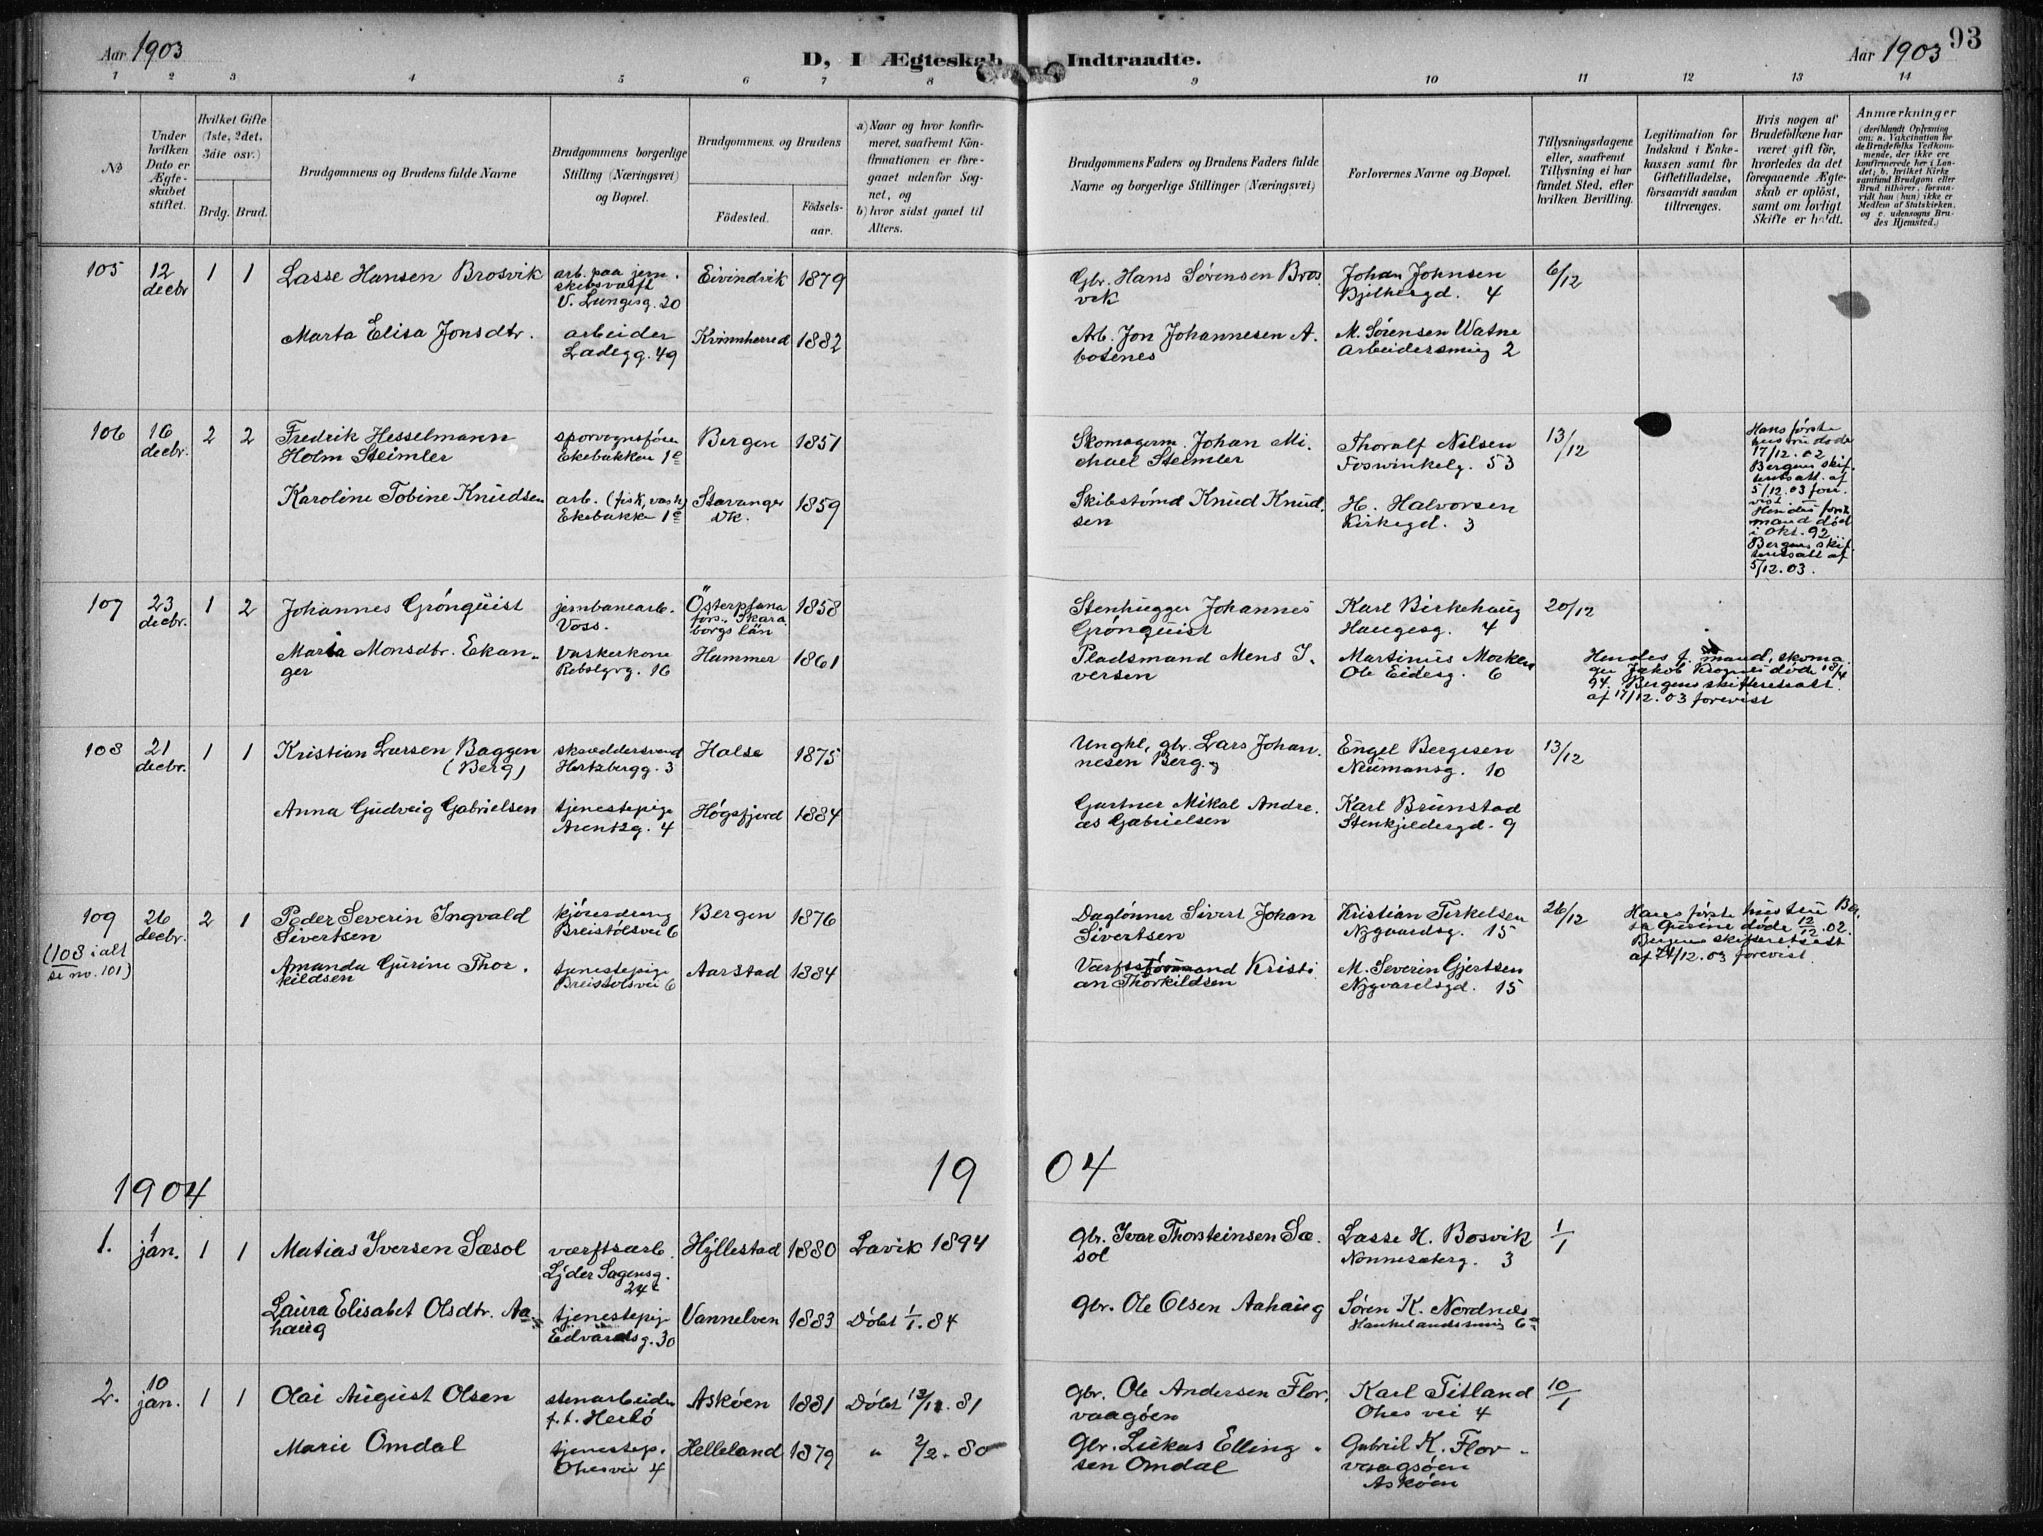 Aar 1903
D, I Ægteskab Indtraadte.
Aar 1903
93
1 2 3 4 5 6 7 8 9 10 11 12 13 14
No
Under hvilken Dato er Ægteskabet stiftet.
Hvilket Gifte (1ste, 2det, 3die osv.)
Brdg. Brud.
Brudgommens og Brudens fulde Navne
Brudgommens borgerlige Stilling (Næringsvei) og Bopæl.
Brudgommens og Brudens
Fødested.
Fødselsaar.
a) Naar og hvor konfirmeret, saafremt Konfirmationen er foregaaet udenfor Sognet, og
b) hvor sidst gaaet til Alters.
Brudgommens Faders og Brudens Faders fulde Navne og borgerlige Stillinger (Næringsvei)
Forlovernes Navne og Bopæl.
Tillysningsdagene eller, saafremt Tillysning ei har fundet Sted, efter hvilken Bevilling.
Legitimation for Indskud i Enkekassen samt for Giftetilladelse, forsaavidt saadan tiltrænges.
Hvis nogen af Brudefolkene har været gift før, hvorledes da det foregaaende Ægteskab er opløst, samt om lovligt Skifte er holdt.
Anmærkninger
(deriblandt Oplysning om: a. Vakcination for de Brudefolks Vedkommende, der ikke ere konfirmerede her i Landet; b. hvilket Kirkesamfund Brudgom eller Brud tilhører, forsaavidt han (hun) ikke er Medlem af Statskirken, og c. udensogns Brudes Hjemsted.)
105 12 decbr 1 1 Lasse Hansen Brosvik
arb. paa jern.
skibsværft
V. Lungesg. 20
Eivindvik 1879
Gbr. Hans Sørensen Bros
vik
Johan Johnsen
4
6/12
Marta Elisa Jonsdtr.
arbeider
Ladegg. 49
Kvinnherred 1882
Arb. Jon Johannesen A.
botenes
M. Sørensen Watne
Arbeidersmug 2
106 16 decbr. 2 2 Fredrik Hesselmann
Holm Steimler
sporvognsfører
Ekebakken 1e
Bergen 1851
Skomagerm. Johan Mi.
chael Steimler
Thoralf Nilsen
Fosvinkelg. 53
13/12
Hans første
hustru døde
17/12.02
Bergens skif
teretsatt. af
5/12.03 fore
vist
Hendes første
mand død
i Okt. 92
Bergens skif
teretsatt af
5/12.03.
Karoline Tobine Knudsen
arb. (fisk, vask)
Ekebakken 1e
Stavanger
Dk.
1859
Skibstømd Knud Knud
sen
H. Halvorsen
Kirkegd. 3
107 23 decbr. 1 2 Johannes Grönquist
jernbanearb.
Voss.
Österplana
förs., Skara
borgs län
1858
Stenhugger Johannes
Grönquist
Karl Birkehaug
Haugesg. 4
20/12
Maria Monsdtr. Ekan
ger
Vaskerkone
Rebslgrg. 16
Hammer 1861
Pladsmand Mons I.
versen
Martinus Morken
Ole Eidesg. 6
Hendes f. mand, skoma
ger Jakob døde 18/4
94. Bergens skifteretsatt.
af 17/12.03 forevist
108 21 decbr. 1 1 Kristian Larsen Baggen
(Berg)
skræddersvend
Hertzbergg. 3
Halse 1875
Ungkl, gbr. Lars Johan.
nesen Berg
Engel Bergesen
Neumansg. 10
13/12
Anna Gudveig Gabrielsen
tjenestepige
Arentzg. 4
Høgsfjord 1884
Gartner Mikal Andre.
as Gabrielsen
Karl Brunstad
Stenkjeldergd. 9
109 26 decbr. 2 1 Peder Severin Ingvald
Sivertsen
kjøredreng
Breistølsvei 6
Bergen 1876
Daglønner Sivert Johan
Sivertsen
Kristian Terkelsen
Nygaardsg. 15
26/12
Hans første hustru
døde 12/12.02.
Bergens skifteretsatt
af 24/12.03 forevist.
(108 i alt
se no. 101)
Amanda Gurine Thor.
kildsen
tjenestepige
Breistølsvei 6
Aarstad 1884
Værftsformand Kristi
an Thorkildsen
M. Severin Gjertsen
Nygaardsgd. 15
1904
19 04
1. 1 jan. 1 1 Matias Iversen Sæsol
værftsarb.
Lyder Sagensg.
24c
Hyllestad 1880 Lavik 1894
gbr. Ivar Thorsteinsen Sæ.
sol
Lasse H. Bosvik
Nonneseterg. 3
1/1
Laura Elisabet Olsdtr. Aa
haug
tjenestepig
Edvardsg. 30
Vannelven 1883 Døbt 1/1. 84
gbr. Ole Olsen Aahaug
Søren K. Nordnæs
Haukelandssmug 6a
2. 10 jan. 1 1 Olai August Olsen
stenarbeider
f. t. Herlø
Askøen 1881 Døbt 13/11. 81
gbr. Ole Andersen Flor.
vaagøen
Karl Titland
Ohes vei 4
10/1
Marie Omdal
tjenestep.
Ohesvei 4
Helleland 1879 " 2/2. 80
Gbr. Lukas Elling
sen Omdal
Gabriel K. Flor
vaagsøen
Askøen